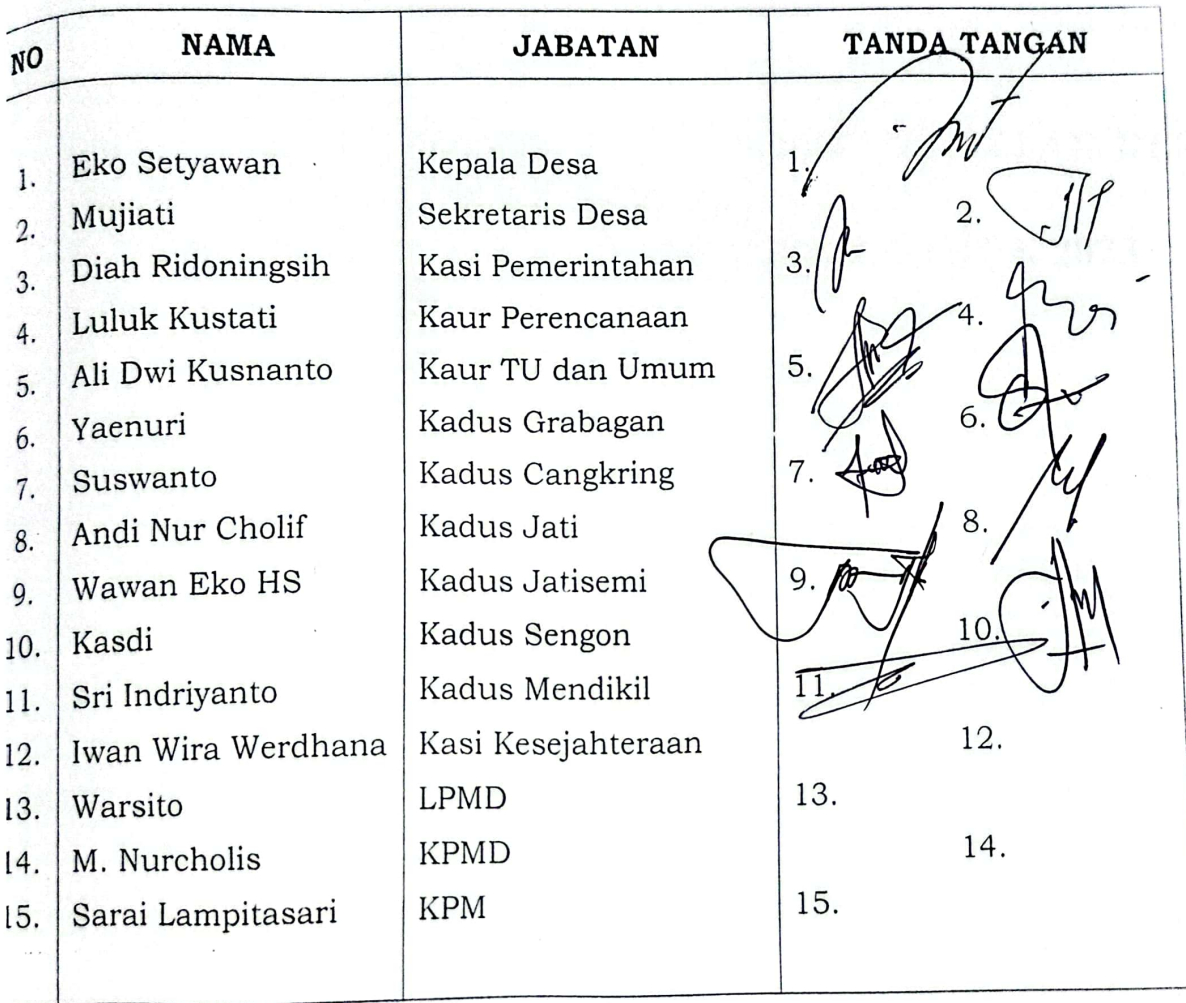 NO NAMA JABATAN TANDA TANGAN
1. Eko Setyawan Kepala Desa 1.
2. Mujiati Sekretaris Desa 2.
3. Diah Ridoningsih Kasi Pemerintahan 3.
4. Luluk Kustati Kaur Perencanaan 4.
5. Ali Dwi Kusnanto Kaur TU dan Umum 5.
6. Yaenuri Kadus Grabagan 6.
7. Suswanto Kadus Cangkring 7.
8. Andi Nur Cholif Kadus Jati 8.
9. Wawan Eko HS Kadus Jatisemi 9.
10. Kasdi Kadus Sengon 10.
11. Sri Indriyanto Kadus Mendikil 11.
12. Iwan Wira Werdhana Kasi Kesejahteraan 12.
13. Warsito LPMD 13.
14. M. Nurcholis KPMD 14.
15. Sarai Lampitasari KPM 15.